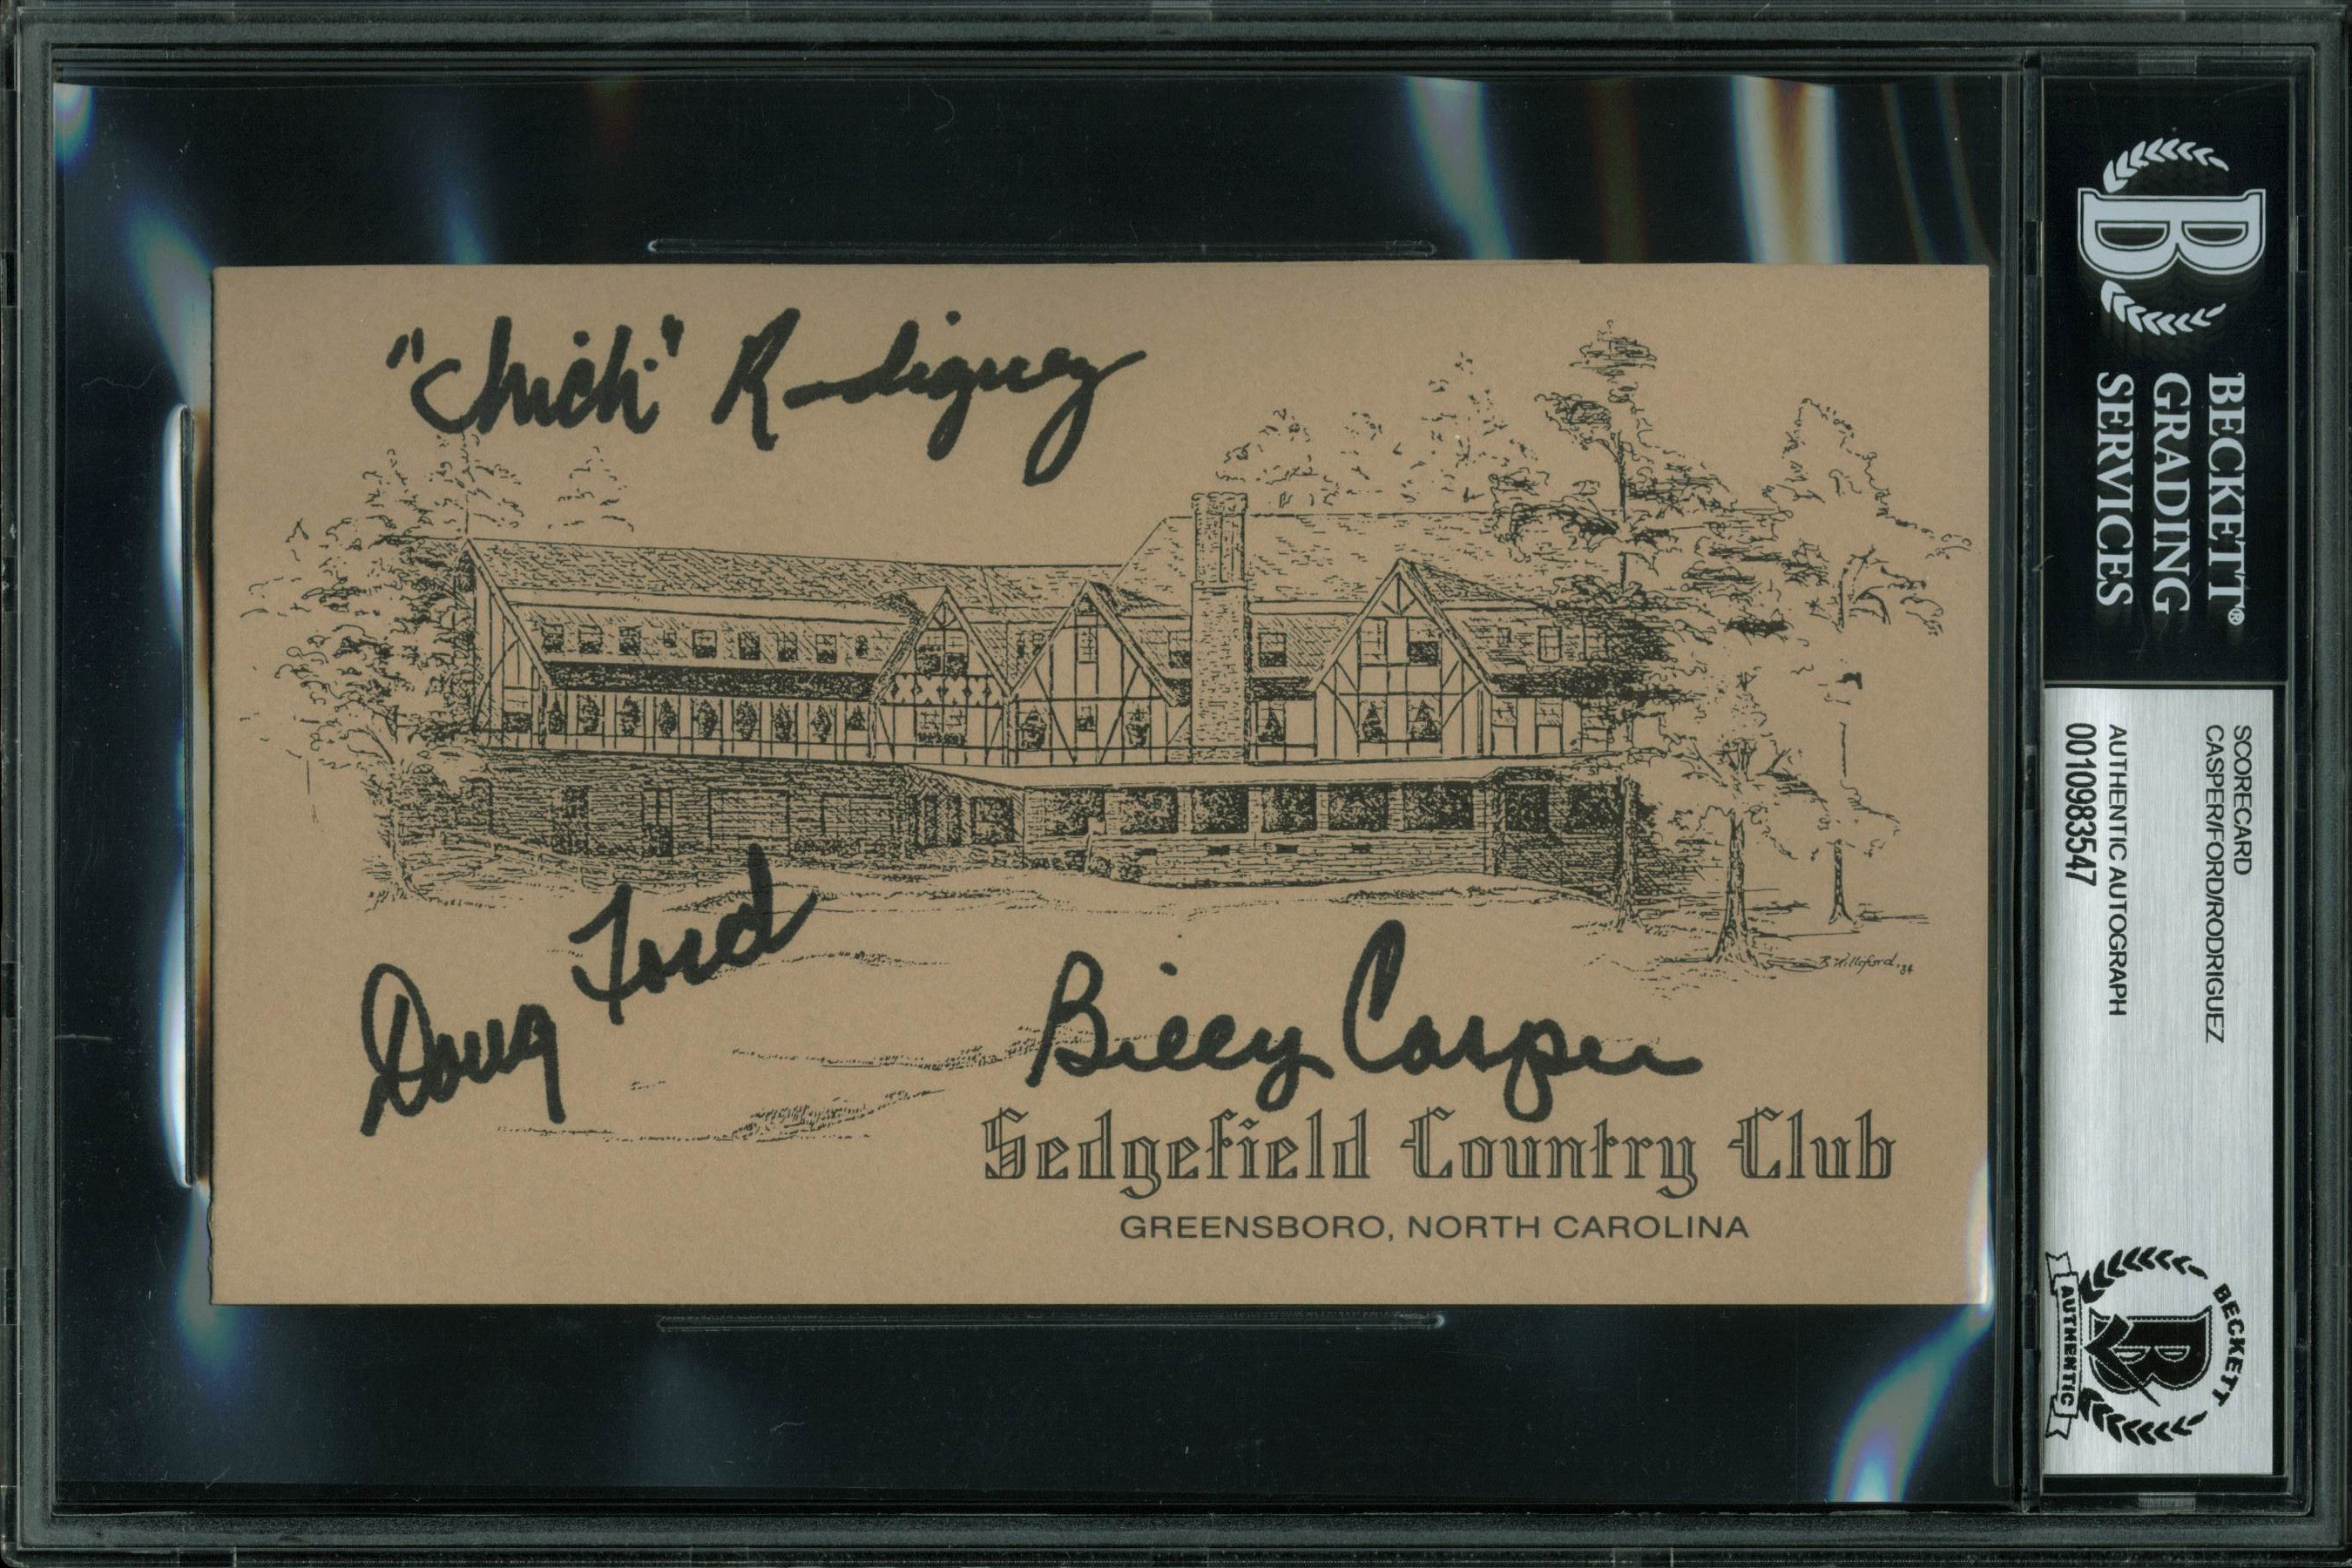 "Chichi" Rodriguez
Doug Ford
Billy Casper
Sedgefield Country Club
GREENSBORO, NORTH CAROLINA
BECKETT®
GRADING
SERVICES
SCORECARD
CASPER/FORD/RODRIGUEZ
AUTHENTIC AUTOGRAPH
0010983547
BECKETT
B
AUTHENTIC